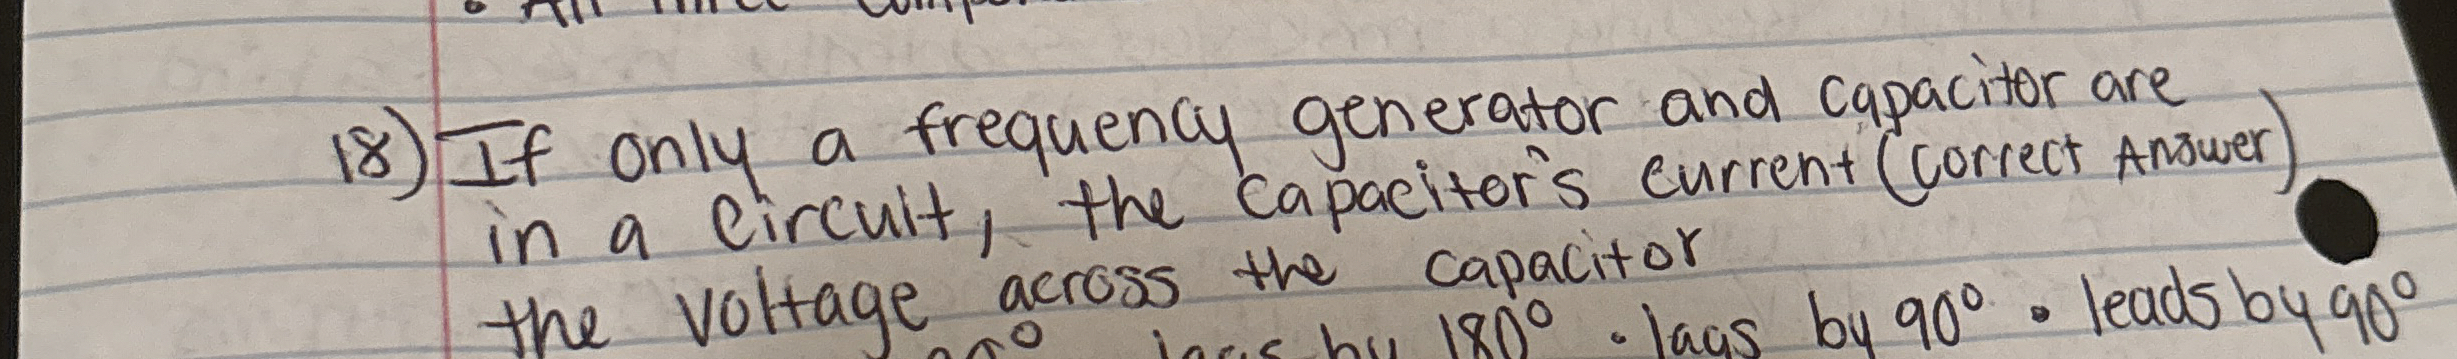 • All
18) If only a frequency generator and capacitor are
in a circuit, the capacitor's current (Correct Answer)
the voltage across the capacitor
lags by 180° • lags by 90° • leads by 90°